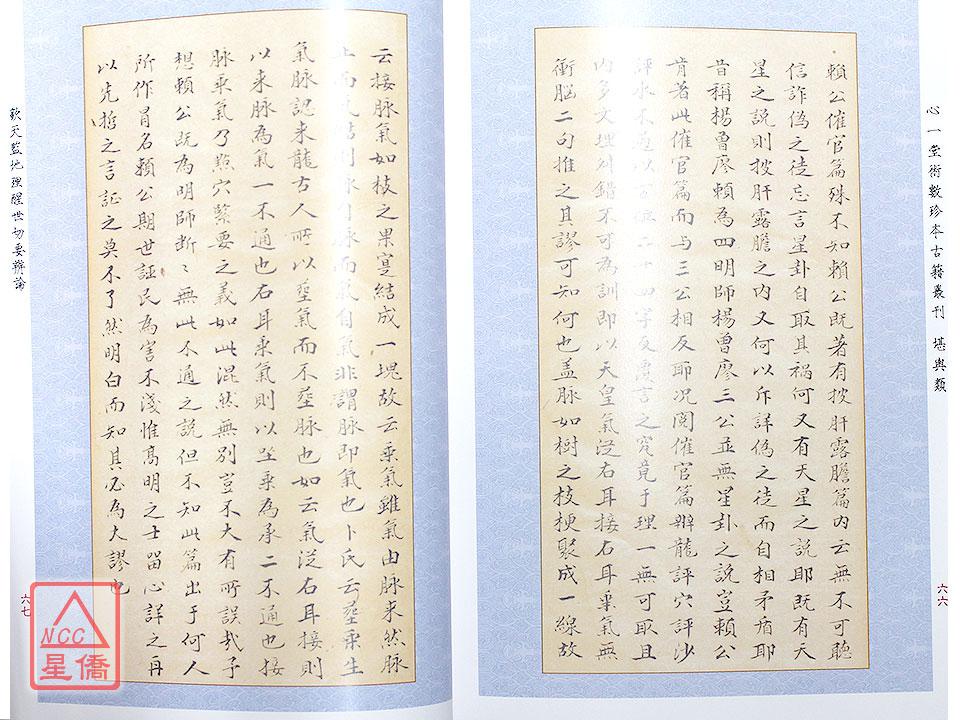 心一堂術數珍本古籍叢刊 堪輿類
六六
賴公催官篇殊不知賴公既著有披肝露膽篇內云無不可聽
信詐偽之徒忘言星卦自取其禍何又有天星之說耶既有天
星之說則披肝露膽之內又何以斥詳偽之徒而自相矛盾耶
昔稱楊曾廖賴為四明師楊曾廖三公並無星卦之說豈賴公
肯著此催官篇而与三公相反耶况閱催官篇辨龍評穴評沙
評水不過以百二十四字反覆言之究竟于理一無可取且
內多文理舛錯不可為訓即以天皇氣從右耳接右耳乘氣無
衝腦二句推之其謬可知何也盖脉如樹之枝梗聚成一線故
云接脉氣如枝之果寔結成一塊故云乘氣雖氣由脉来然脉
上而氣自氣非謂脉即氣也卜氏云葬乘生
氣脉認来龍古人所以葬氣而不葬脉也如云氣從右耳接則
以来脉為氣一不通也右耳乘氣則以坐乘為承二不通也接
脉乘氣乃㸃穴緊要之義如此混然無別豈不大有所誤哉予
想賴公既為明師斷斷無此不通之說但不知此篇出于何人
所作冒名賴公期世誣民為害不淺惟髙明之士留心詳之再
以先哲之言証之莫不了然明白而知其必為大謬也
欽天監地理醒世切要辯論
六七
NCC
星僑